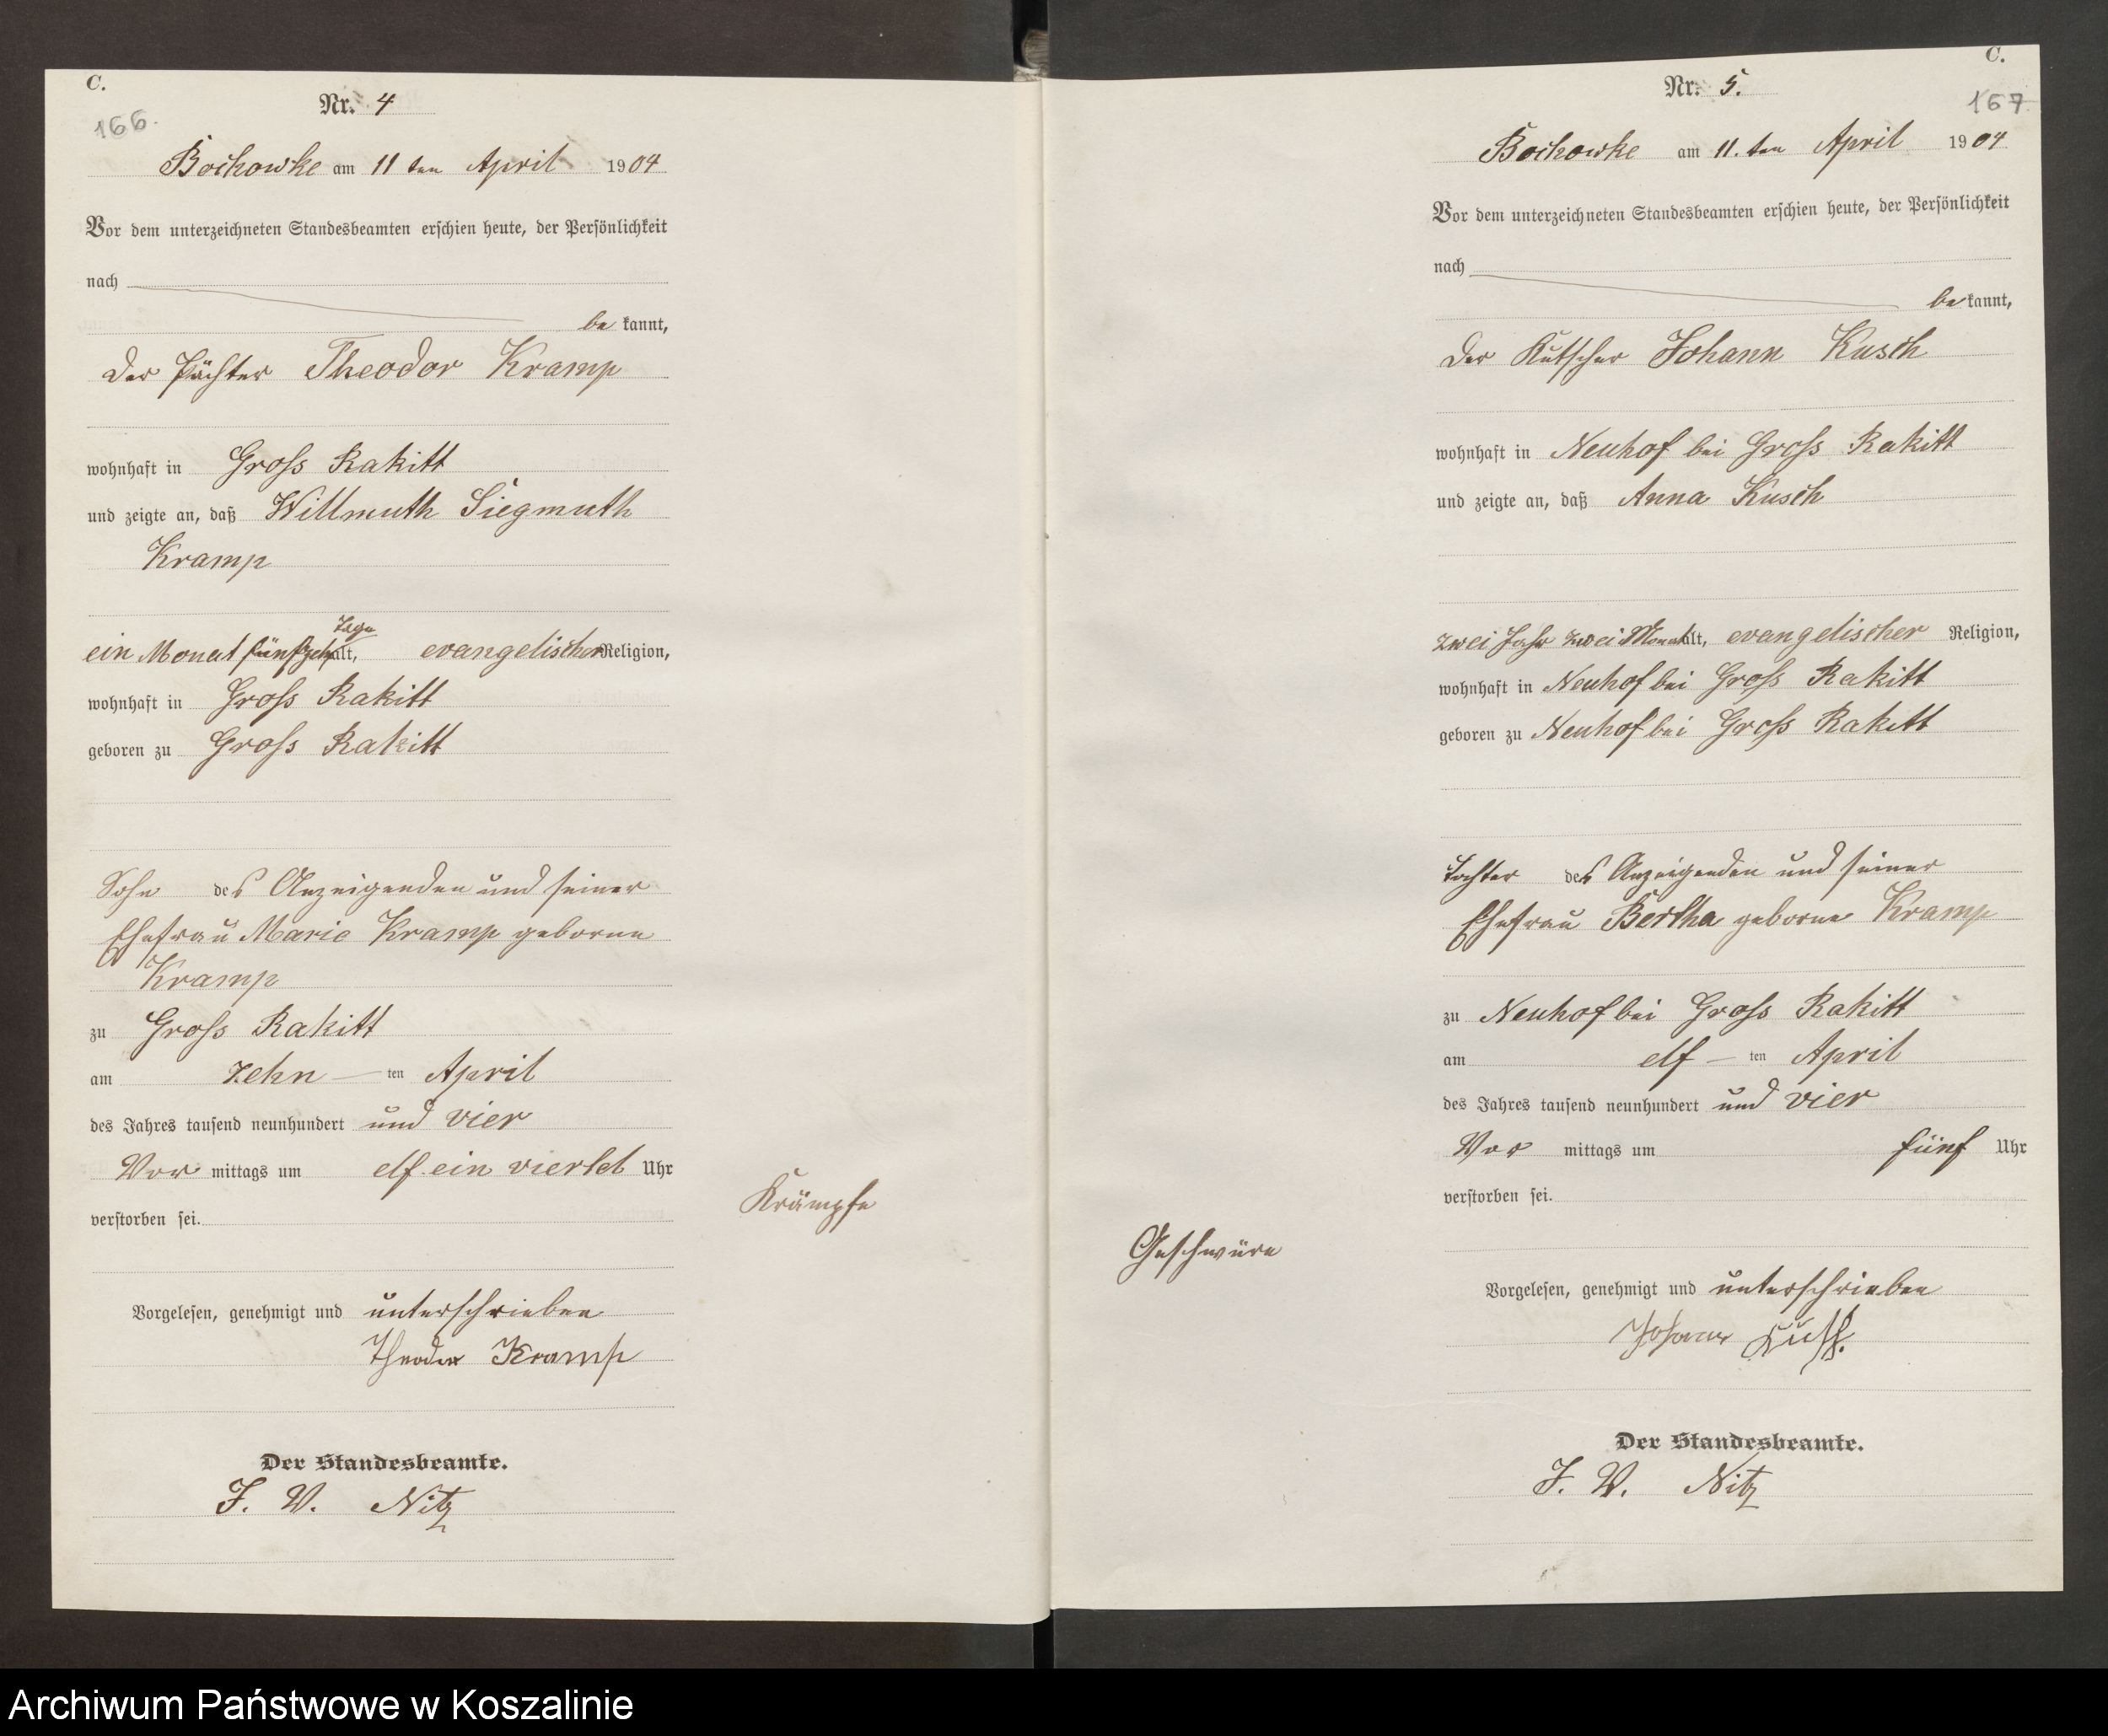 C.
166.
Nr. 4
Bochowke am 11 ten April 1904
Vor dem unterzeichneten Standesbeamten erschien heute, der Persönlichkeit
nach
be kannt,
der Pächter Theodor Kramp
wohnhaft in Gross Rakitt
und zeigte an, daß Willmuth Siegmuth
Kramp
Tage
ein Monat fünfzehn alt, evangelischer Religion,
wohnhaft in Gross Rakitt
geboren zu Gross Rakitt
Sohn des Anzeigenden und seiner
Ehefrau Marie Kramp geborne
Kramp
zu Gross Rakitt
am zehn ten April
des Jahres tausend neunhundert und vier
Vor mittags um elf ein viertel Uhr
verstorben sei.
Krämpfe
Vorgelesen, genehmigt und unterschrieben
Theodor Kramp
Der Standesbeamte.
J. V. Nitz
C.
167
Nr. 5.
Bochowke am 11. ten April 1904
Vor dem unterzeichneten Standesbeamten erschien heute, der Persönlichkeit
nach
be kannt,
der Kutscher Johann Kusch
wohnhaft in Neuhof bei Gross Rakitt
und zeigte an, daß Anna Kusch
zwei Jahr zwei Monat alt, evangelischer Religion,
wohnhaft in Neuhof bei Gross Rakitt
geboren zu Neuhof bei Gross Rakitt
Tochter des Anzeigenden und seiner
Ehefrau Bertha geborne Kramp
zu Neuhof bei Gross Rakitt
am elf ten April
des Jahres tausend neunhundert und vier
Vor mittags um fünf Uhr
verstorben sei.
Geschwüre
Vorgelesen, genehmigt und unterschrieben
Johann Kusch.
Der Standesbeamte.
J. V. Nitz
Archiwum Państwowe w Koszalinie